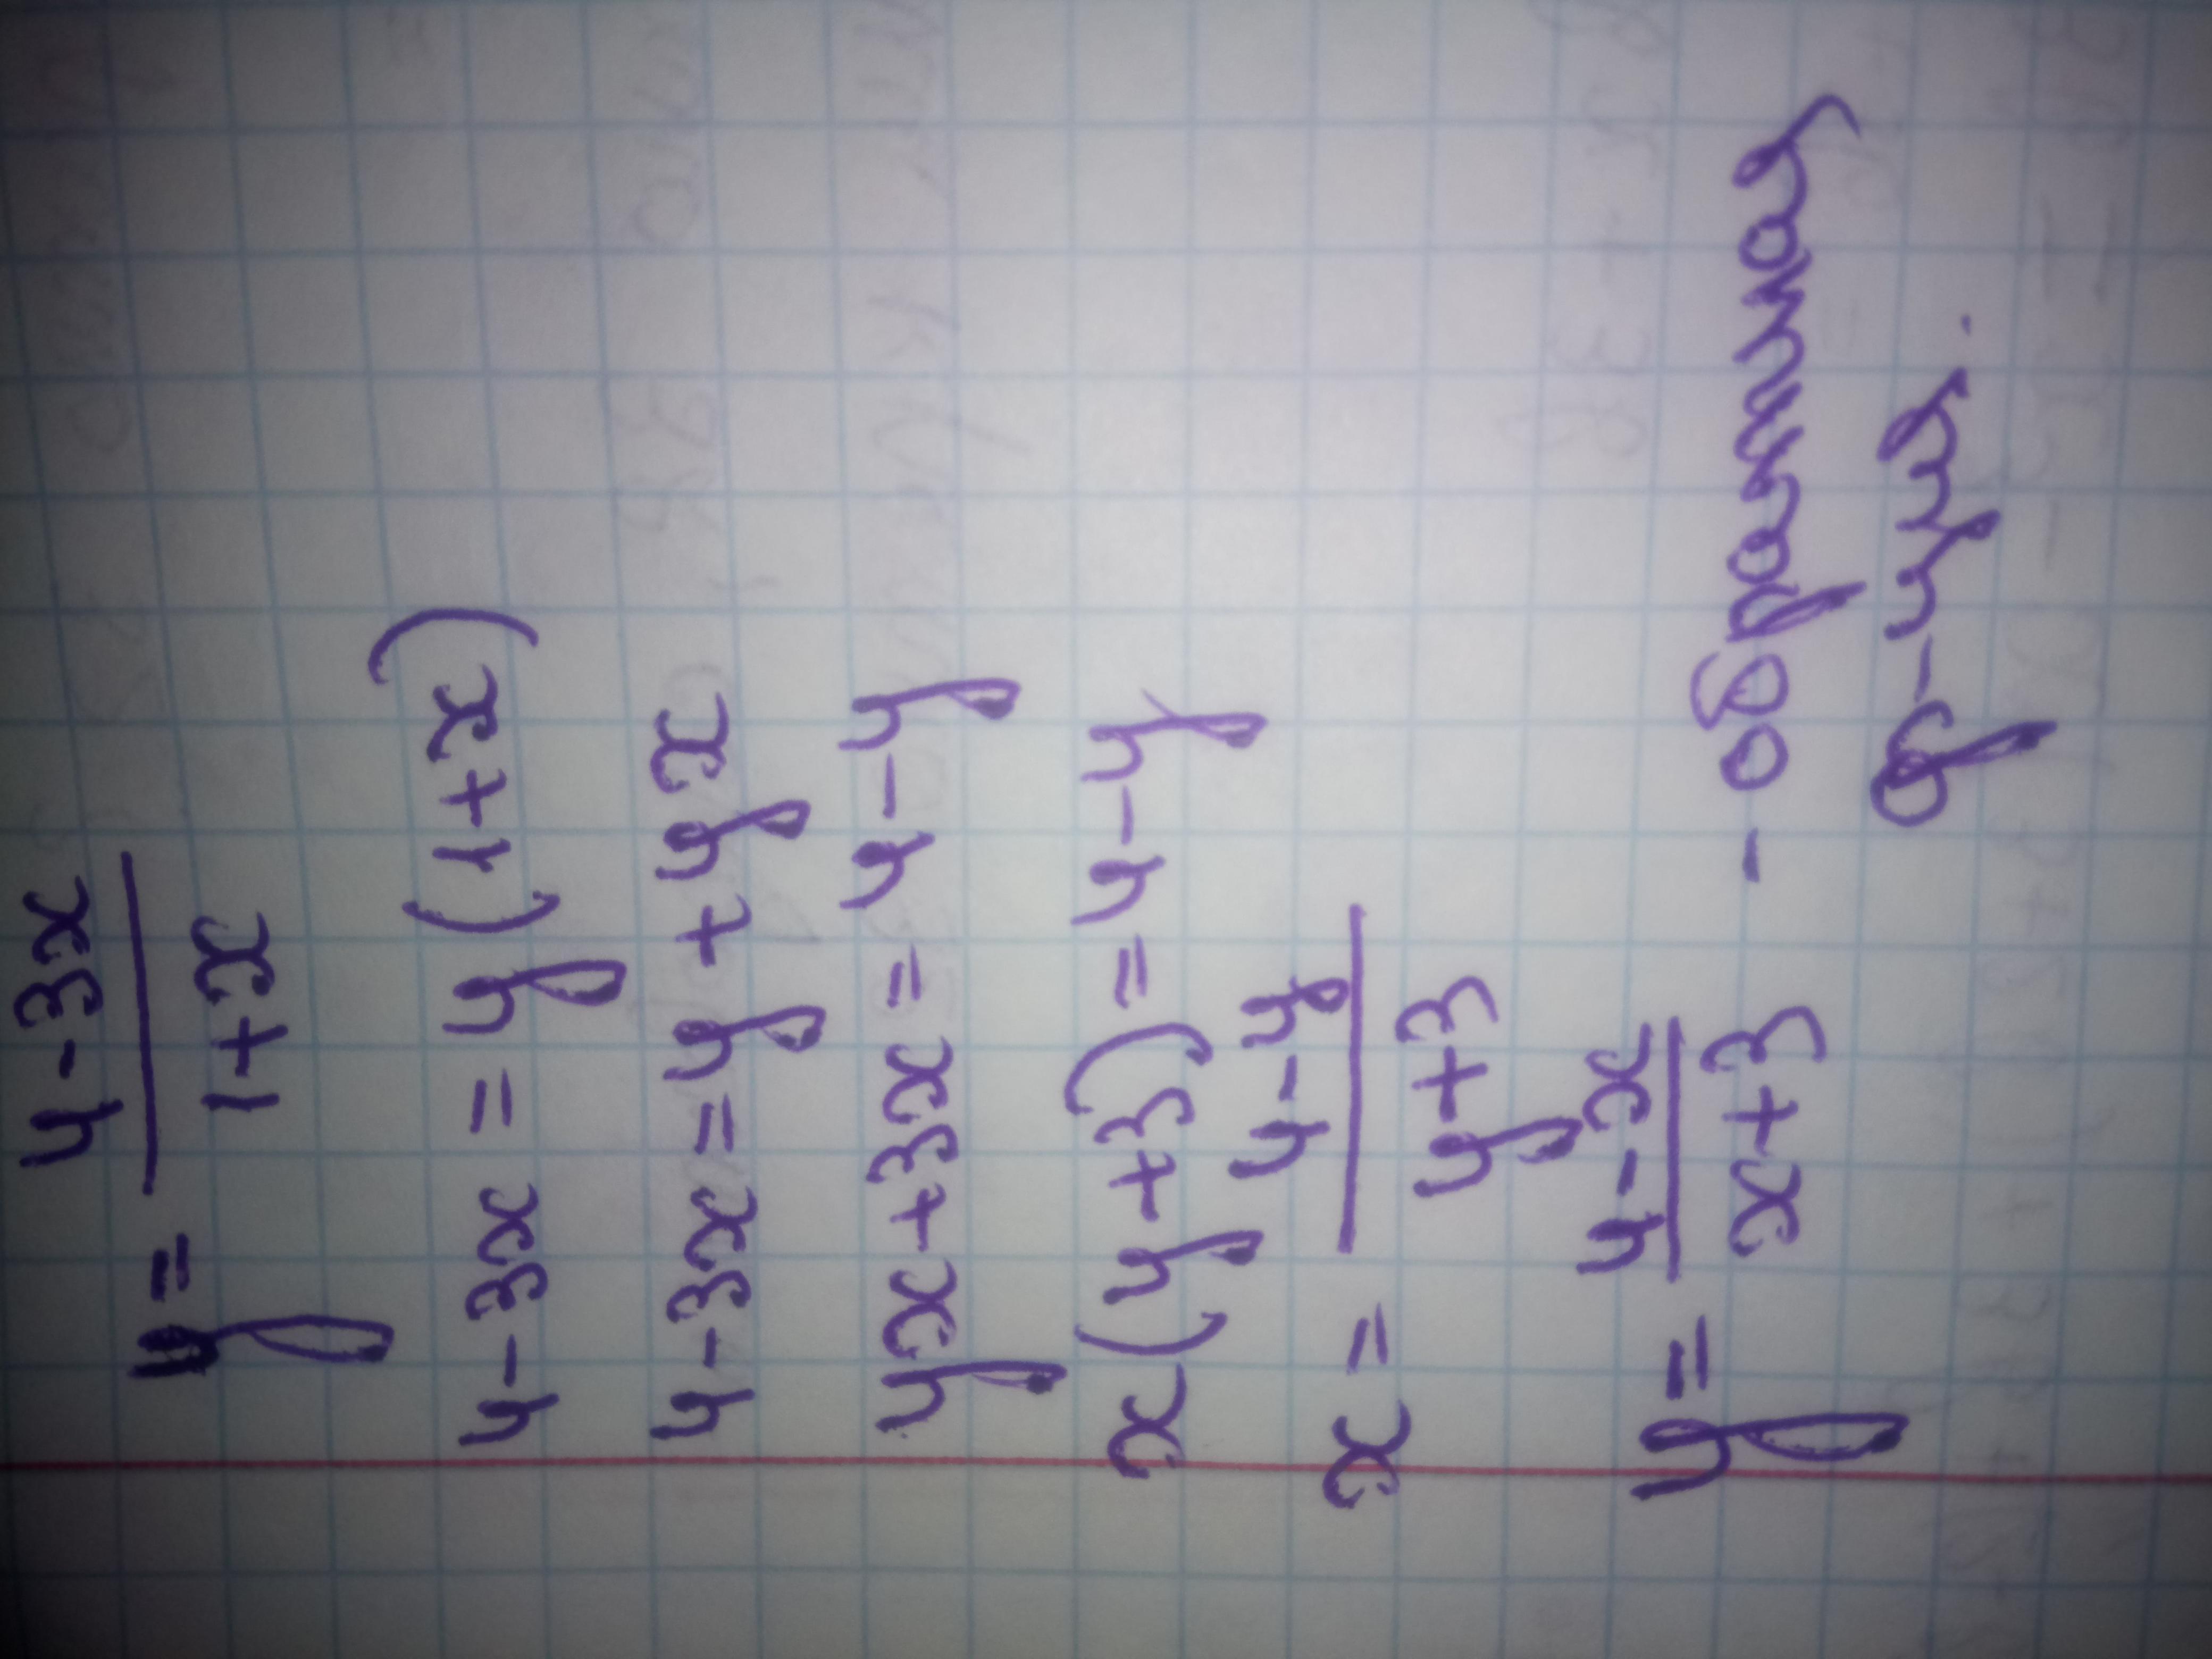 y = 4-3x / 1+x
4-3x = y(1+x)
4-3x = y + yx
yx+3x = 4-y
x(y+3) = 4-y
x = 4-y / y+3
y = 4-x / x+3 - обратная
ф-ция.